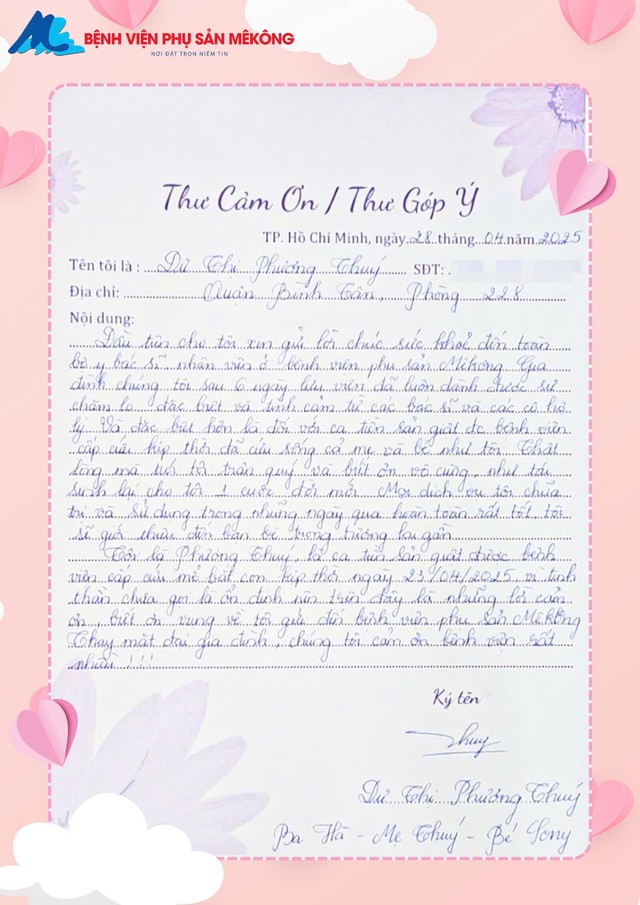 BỆNH VIỆN PHỤ SẢN MÊKÔNG
NƠI ĐẶT TRỌN NIỀM TIN
Thư Cảm Ơn / Thư Góp Ý
TP. Hồ Chí Minh, ngày 28 tháng 04 năm 2025
Tên tôi là : Dư Thị Phương Thuý SĐT:
Địa chỉ: Quận Bình Tân, Phòng 228
Nội dung:
Đầu tiên cho tôi xin gửi lời chúc sức khoẻ đến toàn
bộ y bác sĩ nhân viên ở bệnh viện phụ sản Mêkong Gia
đình chúng tôi sau 6 ngày lưu viện đã luôn dành được sự
chăm lo đặc biệt và tình cảm từ các bác sĩ và các cô hộ
lý Và đặc biệt hơn là đối với ca tiền sản giật đc bệnh viện
cấp cứu kịp thời đã cứu sống cả mẹ và bé như tôi Thật
lòng mà nói tôi trân quý và biết ơn vô cùng, như tái
sinh lại cho tôi 1 cuộc đời mới Mọi dịch vụ tôi chữa
trị và sử dụng trong những ngày qua hoàn toàn rất tốt, tôi
sẽ giới thiệu đến bạn bè trong tương lai gần
Tôi là Phương Thuý là ca tiền sản giật được bệnh
viện cấp cứu mổ bắt con kịp thời ngày 23/04/2025, vì tinh
thần chưa gọi là ổn định nên trên đây là những lời cảm
ơn, biết ơn vụng về tôi gửi đến bệnh viện phụ sản Mêkông
Thay mặt đại gia đình, chúng tôi cảm ơn bệnh viện rất
nhiều !!!
Ký tên
Thuy
Dư Thị Phương Thuý
Ba Hà - Mẹ Thuý - Bé Sony